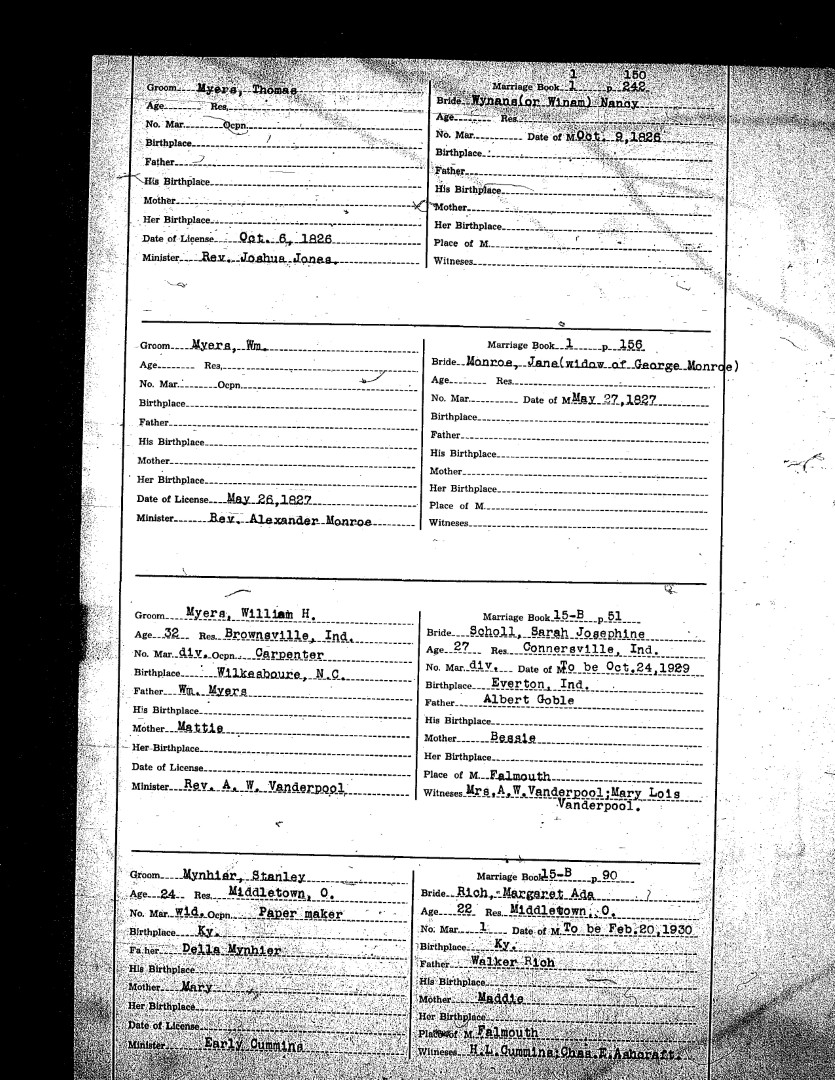 1 150
Groom Myers, Thomas
Marriage Book 1 p 242
Bride Wynans(or Winam) Nancy
Age Res.
Age Res
No. Mar. Ocpn.
No. Mar. Date of M. Oct. 9,1826
Birthplace
Birthplace
Father
Father
His Birthplace
His Birthplace
Mother
Mother
Her Birthplace
Her Birthplace
Date of License Oct. 6, 1826
Place of M.
Minister Rev. Joshua Jones.
Witnesses
Groom Myers, Wm.
Marriage Book 1 p 156
Bride Monroe, Jane(widow of George Monroe)
Age Res.
Age Res
No. Mar. Ocpn.
No. Mar. Date of M. May 27,1827
Birthplace
Birthplace
Father
Father
His Birthplace
His Birthplace
Mother
Mother
Her Birthplace
Her Birthplace
Date of License May 26,1827
Place of M.
Minister Rev. Alexander Monroe
Witnesses
Groom Myers, William H.
Marriage Book 15-B p 51
Bride Scholl, Sarah Josephine
Age 32 Res. Brownsville, Ind.
Age 27 Res Connersville, Ind.
No. Mar. div. Ocpn. Carpenter
No. Mar. div. Date of M. To be Oct.24,1929
Birthplace Wilkesboure, N.C.
Birthplace Everton, Ind.
Father Wm. Myers
Father Albert Goble
His Birthplace
His Birthplace
Mother Mattie
Mother Bessie
Her Birthplace
Her Birthplace
Date of License
Place of M. Falmouth
Minister Rev. A. W. Vanderpool
Witnesses Mrs.A.W.Vanderpool;Mary Lois
Vanderpool.
Groom Mynhier, Stanley
Marriage Book 15-B p 90
Bride Rich, Margaret Ada
Age 24 Res. Middletown, O.
Age 22 Res. Middletown, O.
No. Mar. wid. Ocpn. Paper maker
No. Mar. 1 Date of M. To be Feb.20,1930
Birthplace Ky.
Birthplace Ky.
Father Della Mynhier
Father Walker Rich
His Birthplace
His Birthplace
Mother Mary
Mother Maddie
Her Birthplace
Her Birthplace
Date of License
Place of M. Falmouth
Minister Early Cummins
Witnesses H.L.Cummins;Chas.E.Ashcraft.